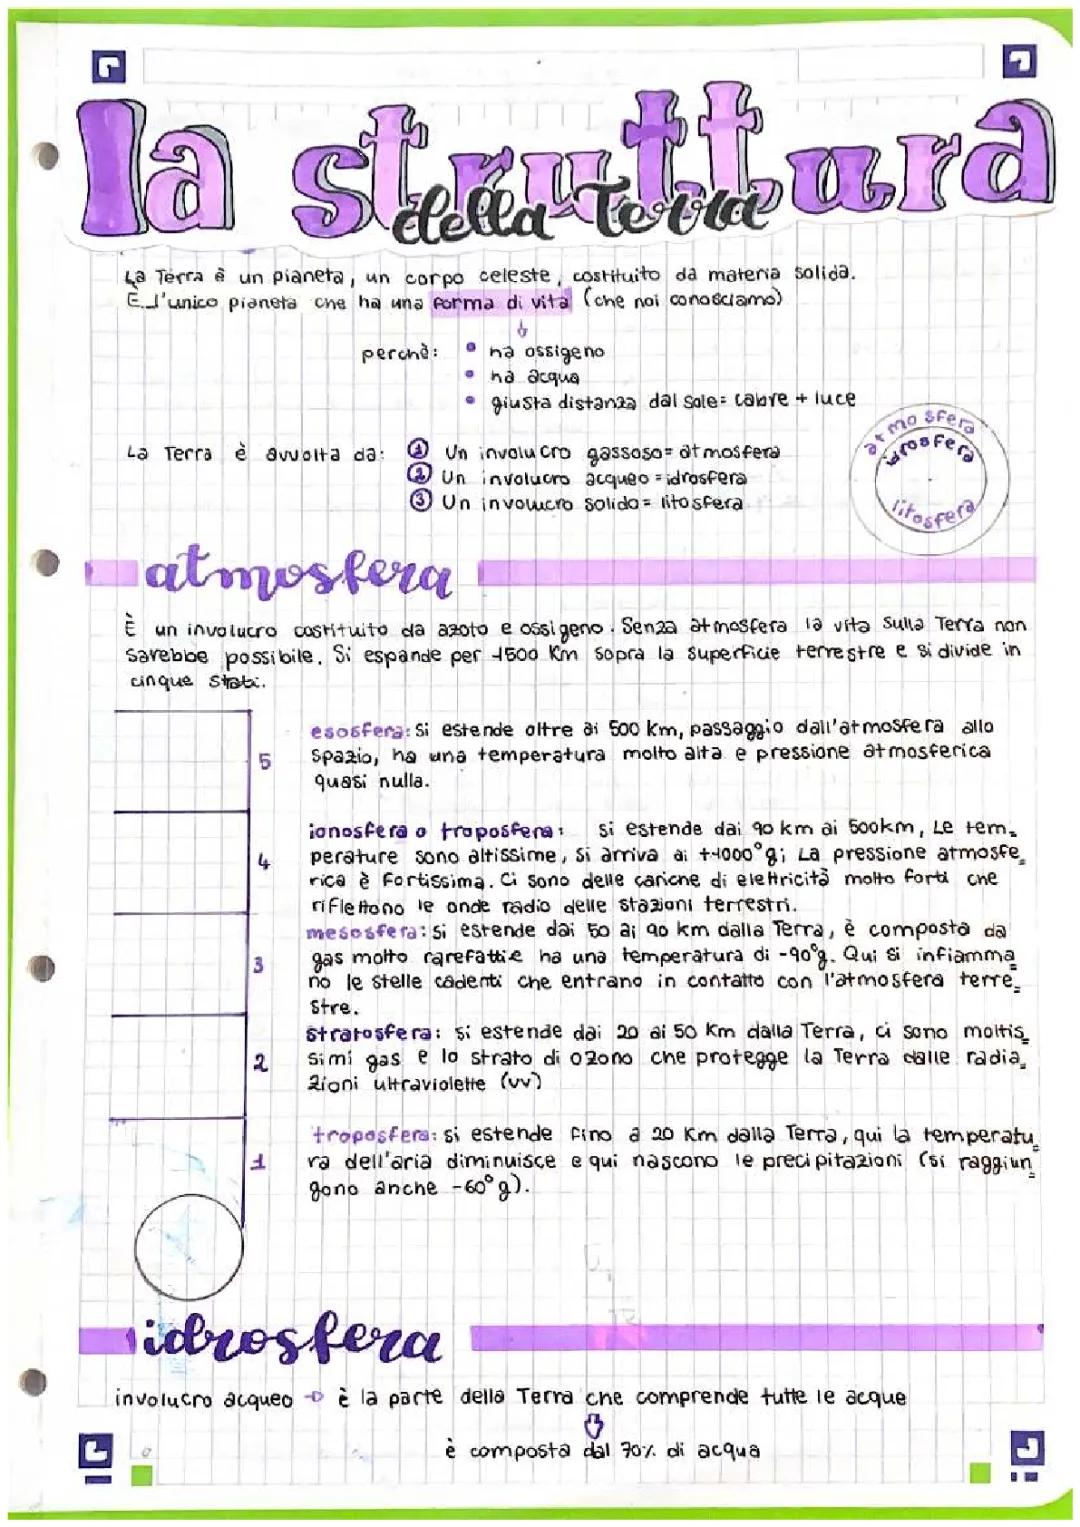 la struttura
della Terra
La Terra è un pianeta, un corpo celeste, costituito da materia solida.
È l'unico pianeta che ha una forma di vita (che noi conosciamo)
perchè: • ha ossigeno
• ha acqua
• giusta distanza dal sole = calore + luce
La Terra è avvolta da: 1 Un involucro gassoso = atmosfera
2 Un involucro acqueo = idrosfera
3 Un involucro solido = litosfera
atmosfera
idrosfera
litosfera
atmosfera
È un involucro costituito da azoto e ossigeno. Senza atmosfera la vita sulla Terra non
sarebbe possibile. Si espande per 1500 Km sopra la superficie terrestre e si divide in
cinque stati.
esosfera: si estende oltre ai 500 km, passaggio dall'atmosfera allo
5 spazio, ha una temperatura molto alta e pressione atmosferica
quasi nulla.
ionosfera o troposfera: si estende dai 90 km ai 500km, Le tem_
4 perature sono altissime, si arriva ai +1000°g; La pressione atmosfe_
rica è fortissima. Ci sono delle cariche di elettricità molto forti che
riflettono le onde radio delle stazioni terrestri.
mesosfera: si estende dai 50 ai 90 km dalla Terra, è composta da
3 gas molto rarefatti e ha una temperatura di -90°g. Qui si infiamma_
no le stelle cadenti che entrano in contatto con l'atmosfera terre_
stre.
stratosfera: si estende dai 20 ai 50 Km dalla Terra, ci sono moltis_
2 simi gas e lo strato di ozono che protegge la Terra dalle radia_
zioni ultraviolette (uv)
troposfera: si estende fino a 20 Km dalla Terra, qui la temperatu_
1 ra dell'aria diminuisce e qui nascono le precipitazioni (si raggiun_
gono anche -60°g).
idrosfera
involucro acqueo → è la parte della Terra che comprende tutte le acque
è composta dal 70% di acqua